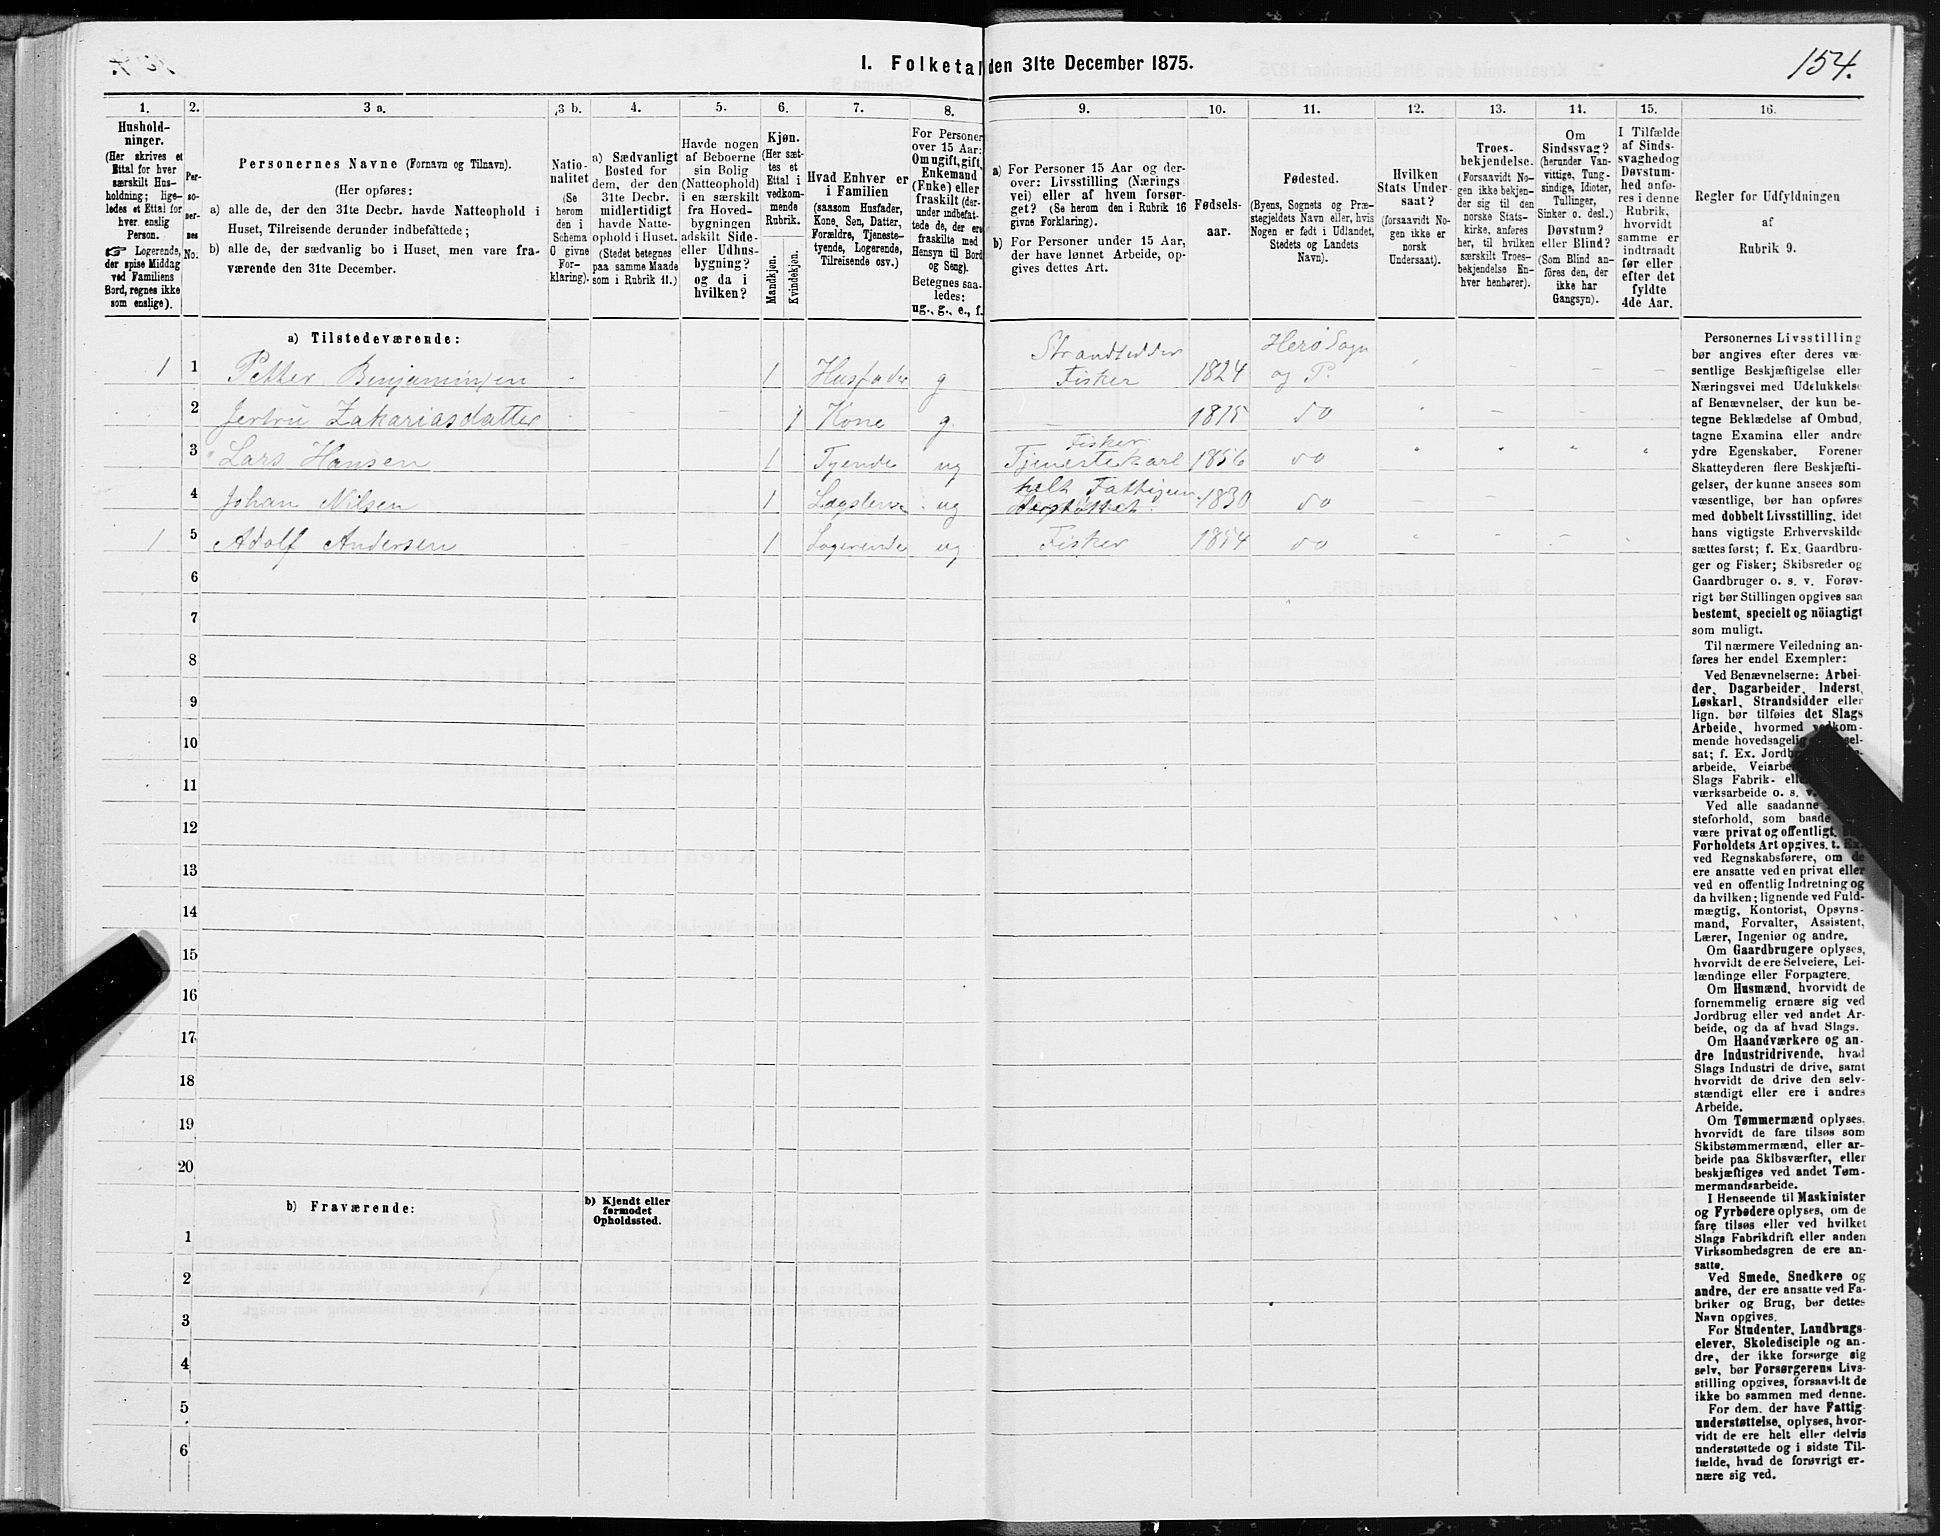 154.
I. Folketal den 31te December 1875.
1. 2. 3 a. 3 b. 4. 5. 6. 7. 8. 9. 10. 11. 12. 13. 14. 15. 16.
Hushold-
ninger.
(Her skrives et
Ettal for hver
særskilt Hus-
holdning; lige-
ledes et Ettal for
hver enslig
Person.
☞ Logerende,
der spise Middag
ved Familiens
Bord, regnes ikke
som enslige).
Per-
so-
ner-
nes
No.
Personernes Navne (Fornavn og Tilnavn).
(Her opføres:
a) alle de, der den 31te Decbr. havde Natteophold i
Huset, Tilreisende derunder indbefattede;
b) alle de, der sædvanlig bo i Huset, men vare fra-
værende den 31te December.
Natio-
nalitet
(Se
herom
den i
Schema
O givne
For-
klaring).
a) Sædvanligt
Bosted for
dem, der den
31te Decbr.
midlertidigt
havde Natte-
ophold i Huset.
(Stedet betegnes
paa samme Maade
som i Rubrik 11.)
Havde nogen
af Beboerne
sin Bolig
(Natteophold)
i en særskilt
fra Hoved-
bygningen
adskilt Side-
eller Udhus-
bygning?
og da i
hvilken?
Kjøn.
(Her sæt-
tes et
Ettal i
vedkom-
mende
Rubrik.
Mandkjøn.
Kvindekjøn.
Hvad Enhver er
i Familien
(saasom Husfader,
Kone, Søn, Datter,
Forældre, Tjeneste-
tyende, Logerende,
Tilreisende osv.)
For Personer
over 15 Aar:
Om ugift, gift,
Enkemand
(Enke) eller
fraskilt (der-
under indbefat-
tede de, der ere
fraskilte med
Hensyn til Bord
og Seng).
Betegnes saa-
ledes:
ug., g., e., f.
a) For Personer 15 Aar og der-
over: Livsstilling (Nærings
vei) eller af hvem forsør-
get? (Se herom den i Rubrik 16
givne Forklaring).
b) For Personer under 15 Aar,
der have lønnet Arbeide, op-
gives dettes Art.
Fødsels-
aar.
Fødested.
(Byens, Sognets og Præ-
stegjeldets Navn eller, hvis
Nogen er født i Udlandet,
Stedets og Landets
Navn).
Hvilken
Stats Under-
saat?
(forsaavidt No-
gen ikke er
norsk
Undersaat).
Troes-
bekjendelse.
(Forsaavidt No-
gen ikke bekjen-
der sig til den
norske Stats-
kirke, anføres
her, til hvilken
særskilt Troes-
bekjendelse En-
hver henhører).
Om
Sindssvag?
(herunder Van-
vittige, Tung-
sindige, Idioter,
Tullinger,
Sinker o. desl.)
Døvstum?
eller Blind?
(Som Blind an-
føres den, der
ikke har
Gangsyn).
I Tilfælde
af Sinds-
svaghed og
Døvstum-
hed anfø-
res i denne
Rubrik,
hvorvidt
samme er
indtraadt
før eller
efter det
fyldte
4de Aar.
Regler for Udfyldningen
af
Rubrik 9.
a) Tilstedeværende:
1 1 Petter Benjaminsen 1 Husfader g Strandsidder Fisker 1824 Herø Sogn og P.
2 Jertru Zakariasdatter 1 Kone g. 1815 do
3 Lars Hansen 1 Tyende ug Fisker Tjenestekarl 1856 do
4 Johan Nilsen 1 ug helt 1830 do
1 5 Adolf Andersen 1 Logerende ug Fisker 1854 do
6
7
8
9
10
11
12
13
14
15
16
17
18
19
20
b) Fraværende:
b) Kjendt eller
formodet
Opholdssted.
1
2
3
4
5
6
Personernes Livsstilling
bør angives efter deres væ-
sentlige Beskjæftigelse eller
Næringsvei med Udelukkelse
af Benævnelser, der kun be-
tegne Beklædelse af Ombud,
tagne Examina eller andre
ydre Egenskaber. Forener
Skatteyderen flere Beskjæfti-
gelser, der kunne ansees som
væsentlige, bør han opføres
med dobbelt Livsstilling, idet
hans vigtigste Erhvervskilde
sættes først; f. Ex. Gaardbru-
ger og Fisker; Skibsreder og
Gaardbruger o. s. v. Forøv-
rigt bør Stillingen opgives saa
bestemt, specielt og nöiagtigt
som muligt.
Til nærmere Veiledning an-
føres her endel Exempler:
Ved Benævnelserne: Arbei-
der, Dagarbeider, Inderst,
Løskarl, Strandsidder eller
lign. bør tilføies det Slags
Arbeide, hvormed vedkom-
mende hovedsagelig
sat; f. Ex.
arbeide,
Slags Fabrik-
værksarbeide o. s. v.
Ved alle saadanne
steforhold, som baade
være privat og offentligt,
Forholdets Art opgives, t. Ex.
ved Regnskabsførere, om de
ere ansatte ved en privat eller
ved en offentlig Indretning og
da hvilken; lignende ved Fuld-
mægtig, Kontorist, Opsyns-
mand, Forvalter, Assistent,
Lærer, Ingeniør og andre.
Om Gaardbrugere oplyses,
hvorvidt de ere Selveiere, Lei-
lændinge eller Forpagtere.
Om Husmænd, hvorvidt de
fornemmelig ernære sig ved
Jordbrug eller ved andet Ar-
beide, og da af hvad Slags.
Om Haandværkere og an-
dre Industridrivende, hvad
Slags Industri de drive, samt
hvorvidt de drive den selv-
stændigt eller ere i andres
Arbeide.
Om Tømmermænd oplyses,
hvorvidt de fare tilsøs som
Skibstømmermænd, eller ar-
beide paa Skibsværfter, eller
beskjæftiges ved andet Tøm-
mermandsarbeide.
I Henseende til Maskinister
og Fyrbødere oplyses, om de
fare tilsøs eller ved hvilket
Slags Fabrikdrift eller anden
Virksomhedsgren de ere an-
satte.
Ved Smede, Snedkere og
andre, der ere ansatte ved Fa-
briker og Brug, bør dettes
Navn opgives.
For Studenter, Landbrugs-
elever, Skoledisciple og an-
dre, der ikke forsørge sig
selv, bør Forsørgerens Livs-
stilling opgives, forsaavidt de
ikke bo sammen med denne.
For dem, der have Fattig-
understøttelse, oplyses, hvor-
vidt de ere helt eller delvis
understøttede og i sidste Til-
fælde, hvad de forøvrigt er-
nære sig ved.